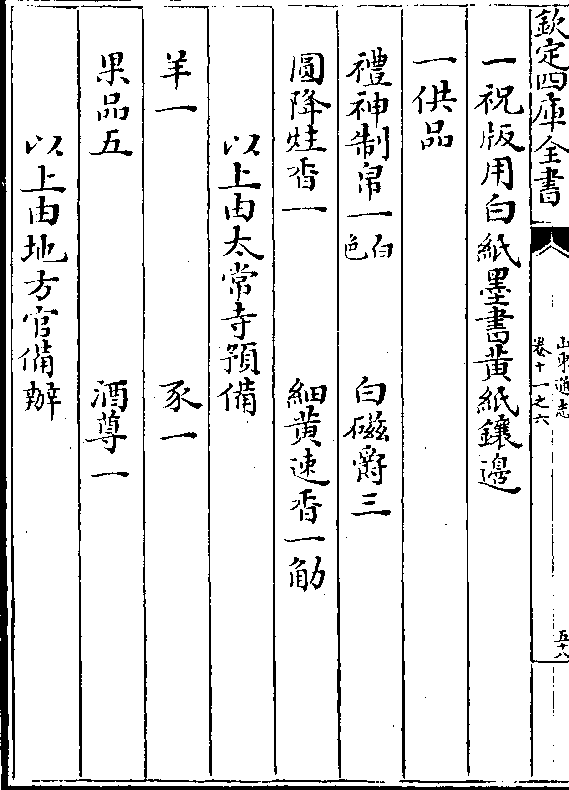 欽定四庫全書
山東通志
卷十一之六
五十八
一祝版用白紙墨書黃紙鑲邊
一供品
禮神制帛一白色 白磁爵三
圓降炷香一 細黃速香一觔
以上由太常寺預備
羊一 豕一
果品五 酒尊一
以上由地方官備辦